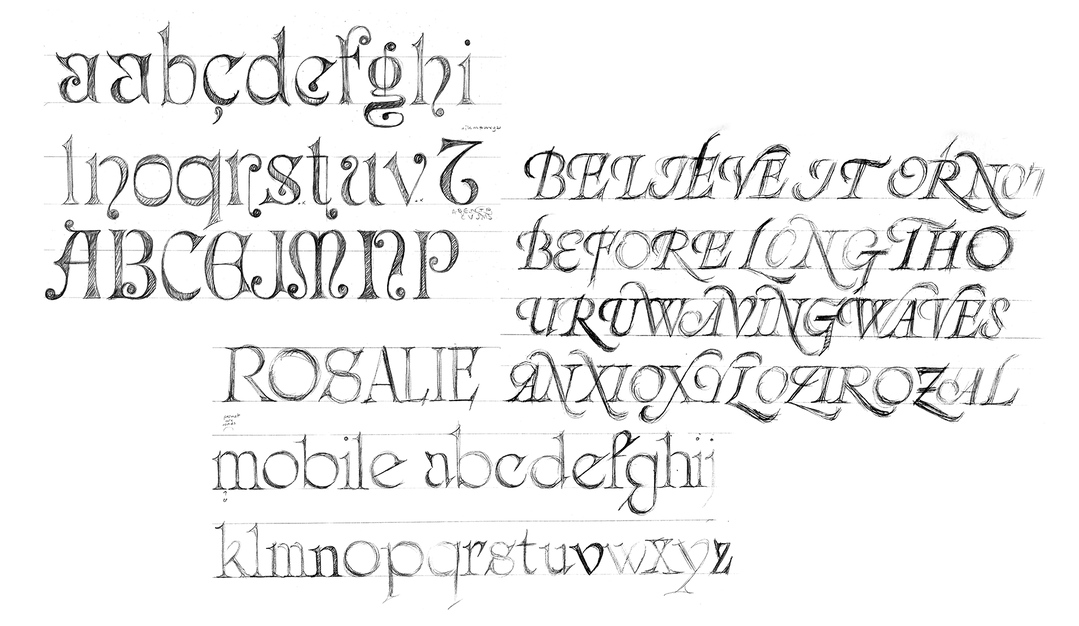 aabçdefghi
lnoqrstuvz
ABCEJMNP
BELIEVE IT OR NOT
BEFORE LONG THO
URUWAVINGWAVES
ANXIOXYLOZIROZAL
ROSALIE
mobile abcdefghij
klmnopqrstuvwxyz